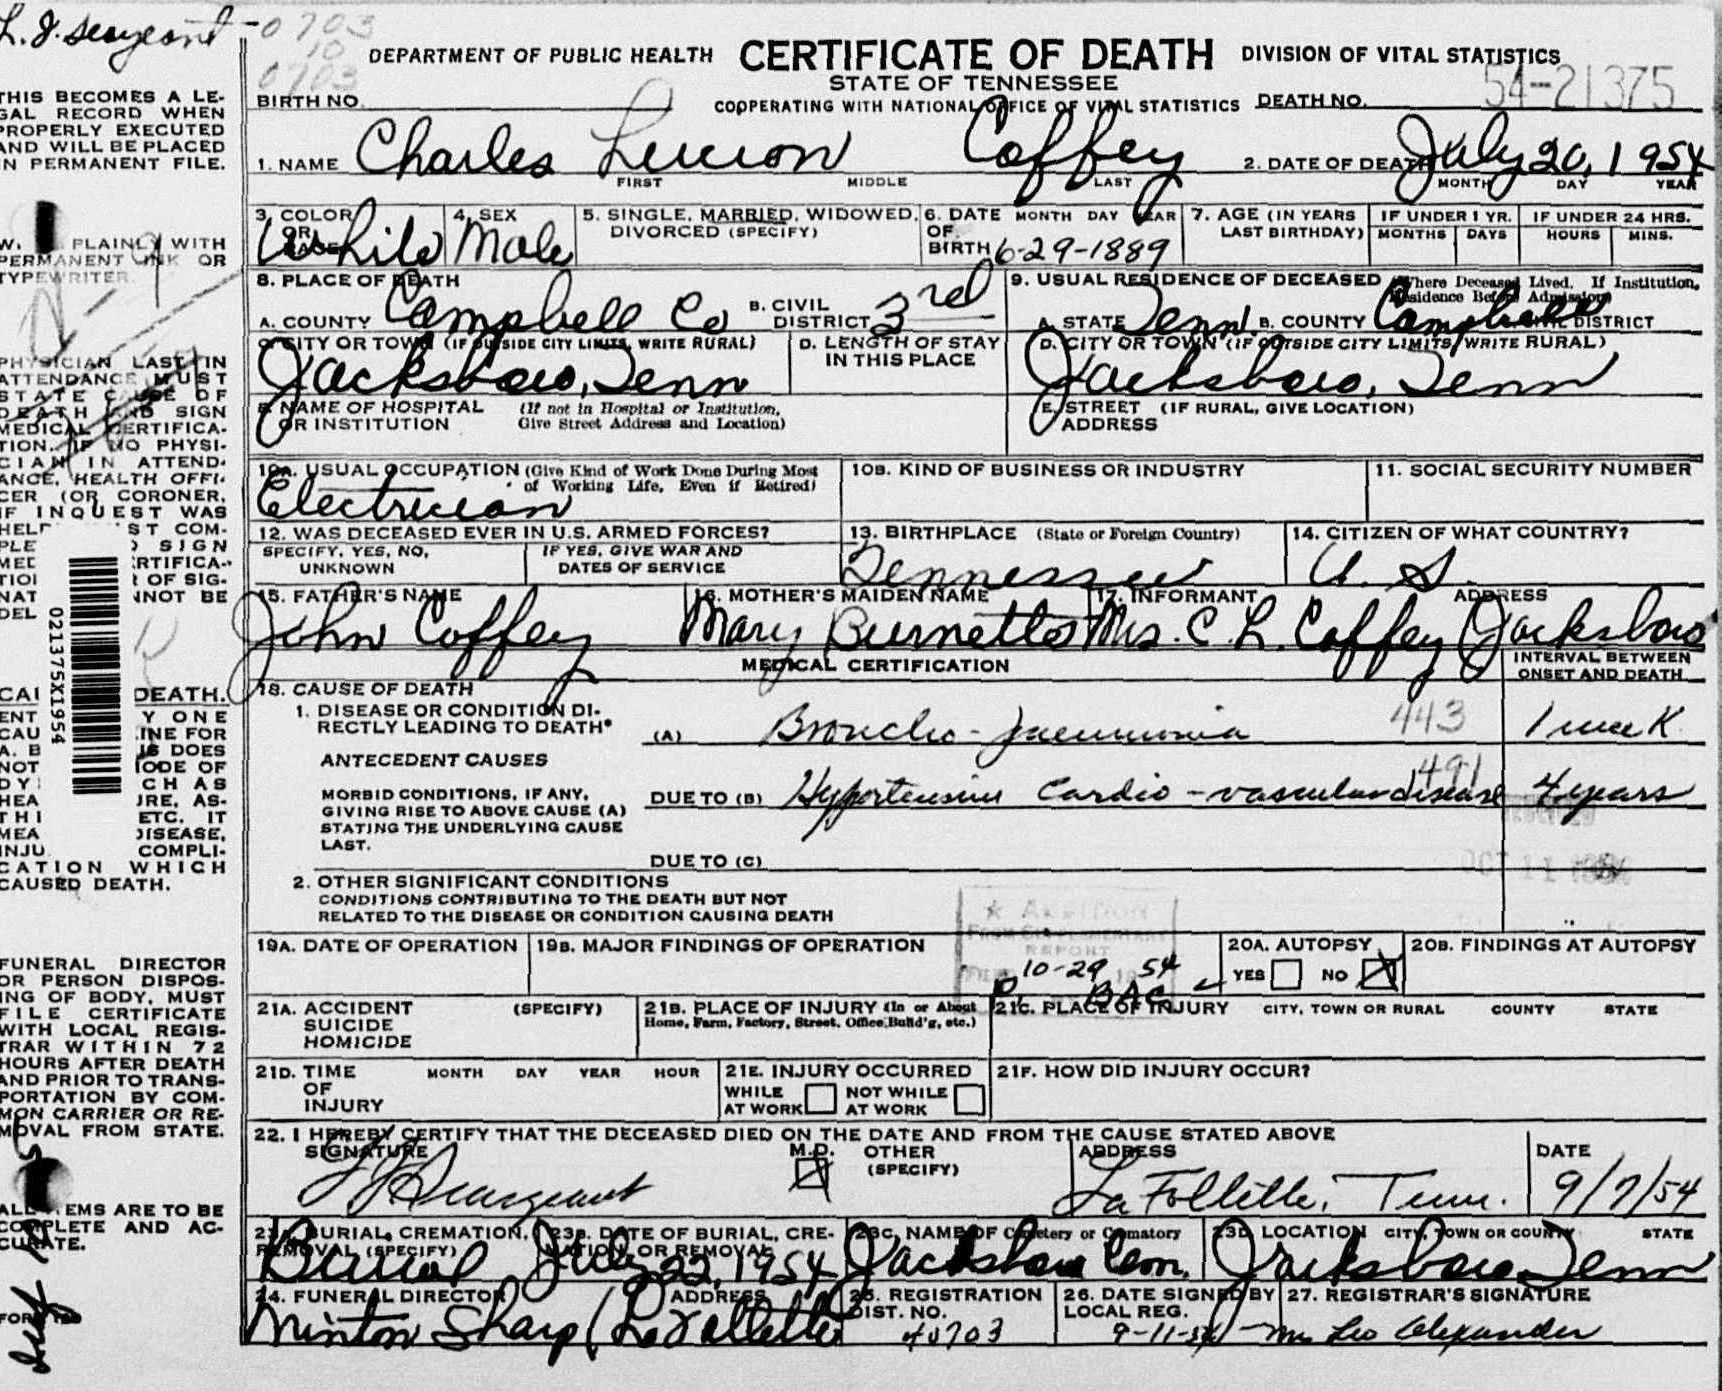 L. J. Seargeant
0703
10
0703
DEPARTMENT OF PUBLIC HEALTH CERTIFICATE OF DEATH DIVISION OF VITAL STATISTICS
STATE OF TENNESSEE
COOPERATING WITH NATIONAL OFFICE OF VITAL STATISTICS
BIRTH NO. DEATH NO. 54-21375
1. NAME Charles Lucion Coffey 2. DATE OF DEATH July 20, 1954
FIRST MIDDLE LAST MONTH DAY YEAR
3. COLOR OR RACE White 4. SEX Male 5. SINGLE, MARRIED, WIDOWED, DIVORCED (SPECIFY) 6. DATE OF BIRTH MONTH DAY YEAR 6-29-1889 7. AGE (IN YEARS LAST BIRTHDAY) IF UNDER 1 YR. MONTHS DAYS IF UNDER 24 HRS. HOURS MINS.
8. PLACE OF DEATH 9. USUAL RESIDENCE OF DECEASED (Where Deceased Lived. If Institution, Residence Before Admission)
A. COUNTY Campbell Co B. CIVIL DISTRICT 3rd A. STATE Tenn. B. COUNTY Campbell CIVIL DISTRICT
C. CITY OR TOWN (IF OUTSIDE CITY LIMITS, WRITE RURAL) D. LENGTH OF STAY IN THIS PLACE D. CITY OR TOWN (IF OUTSIDE CITY LIMITS, WRITE RURAL)
Jacksboro, Tenn Jacksboro, Tenn
E. NAME OF HOSPITAL OR INSTITUTION (If not in Hospital or Institution, Give Street Address and Location) E. STREET ADDRESS (IF RURAL, GIVE LOCATION)
10A. USUAL OCCUPATION (Give Kind of Work Done During Most of Working Life, Even if Retired) 10B. KIND OF BUSINESS OR INDUSTRY 11. SOCIAL SECURITY NUMBER
Electrician
12. WAS DECEASED EVER IN U.S. ARMED FORCES? 13. BIRTHPLACE (State or Foreign Country) 14. CITIZEN OF WHAT COUNTRY?
SPECIFY, YES, NO, UNKNOWN IF YES, GIVE WAR AND DATES OF SERVICE Tennessee U. S.
15. FATHER'S NAME 16. MOTHER'S MAIDEN NAME 17. INFORMANT ADDRESS
John Coffey Mary Burnette Mrs. C. L. Coffey Jacksboro
MEDICAL CERTIFICATION INTERVAL BETWEEN ONSET AND DEATH
18. CAUSE OF DEATH
1. DISEASE OR CONDITION DIRECTLY LEADING TO DEATH* (A) Broncho-pneumonia 443 1 week
ANTECEDENT CAUSES 491
MORBID CONDITIONS, IF ANY, GIVING RISE TO ABOVE CAUSE (A) STATING THE UNDERLYING CAUSE LAST. DUE TO (B) Hypertensive Cardio-vascular disease 4 years
DUE TO (C)
OCT 11
2. OTHER SIGNIFICANT CONDITIONS
CONDITIONS CONTRIBUTING TO THE DEATH BUT NOT
RELATED TO THE DISEASE OR CONDITION CAUSING DEATH
★ ADDITION
FROM SUPPLEMENTARY
REPORT
10-29 1954
BAC
19A. DATE OF OPERATION 19B. MAJOR FINDINGS OF OPERATION 20A. AUTOPSY YES NO 20B. FINDINGS AT AUTOPSY
21A. ACCIDENT SUICIDE HOMICIDE (SPECIFY) 21B. PLACE OF INJURY (In or About Home, Farm, Factory, Street, Office Build'g, etc.) 21C. PLACE OF INJURY CITY, TOWN OR RURAL COUNTY STATE
21D. TIME OF INJURY MONTH DAY YEAR HOUR 21E. INJURY OCCURRED WHILE AT WORK NOT WHILE AT WORK 21F. HOW DID INJURY OCCUR?
22. I HEREBY CERTIFY THAT THE DECEASED DIED ON THE DATE AND FROM THE CAUSE STATED ABOVE
SIGNATURE M.D. OTHER (SPECIFY) ADDRESS DATE
L J Seargeant LaFollette, Tenn. 9/7/54
23A. BURIAL, CREMATION, REMOVAL (SPECIFY) 23B. DATE OF BURIAL, CREMATION, OR REMOVAL 23C. NAME OF Cemetery or Crematory 23D. LOCATION CITY, TOWN OR COUNTY STATE
Burial July 22, 1954 Jacksboro Cem. Jacksboro, Tenn
24. FUNERAL DIRECTOR ADDRESS 25. REGISTRATION DIST. NO. 26. DATE SIGNED BY LOCAL REG. 27. REGISTRAR'S SIGNATURE
Minton Sharp (LaFollette 40703 9-11-54 Mrs Leo Alexander
THIS BECOMES A LE-
GAL RECORD WHEN
PROPERLY EXECUTED
AND WILL BE PLACED
IN PERMANENT FILE.
PLAINLY WITH
PERMANENT INK OR
TYPEWRITER.
PHYSICIAN LAST IN
ATTENDANCE MUST
STATE CAUSE OF
DEATH AND SIGN
MEDICAL CERTIFICA-
TION. IF NO PHYSI-
CIAN IN ATTEND-
ANCE, HEALTH OFFI-
CER (OR CORONER,
IF INQUEST WAS
021375X1954
DEATH.
CATION WHICH
CAUSED DEATH.
FUNERAL DIRECTOR
OR PERSON DISPOS-
ING OF BODY, MUST
FILE CERTIFICATE
WITH LOCAL REGIS-
TRAR WITHIN 72
HOURS AFTER DEATH
AND PRIOR TO TRANS-
PORTATION BY COM-
MON CARRIER OR RE-
MOVAL FROM STATE.
ALL ITEMS ARE TO BE
COMPLETE AND AC-
CURATE.